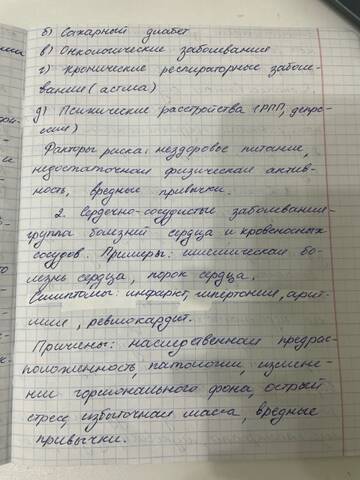 б) Сахарный диабет
в) Онкологические заболевания
г) Хронические респираторные заболе-
вания (астма)
д) Психические расстройства (РПП, депре-
ссия)
Факторы риска: нездоровое питание,
недостаточная физическая актив-
ность, вредные привычки.
2. Сердечно-сосудистые заболевания -
группа болезней сердца и кровеносных
сосудов. Примеры: ишемическая бо-
лезнь сердца, порок сердца.
Симптомы: инфаркт, гипертония, арит-
мия, ревмокардит.
Причины: наследственная предрас-
положенность, патологии, измене-
нии гормонального фона, острый
стресс, избыточная масса, вредные
привычки.